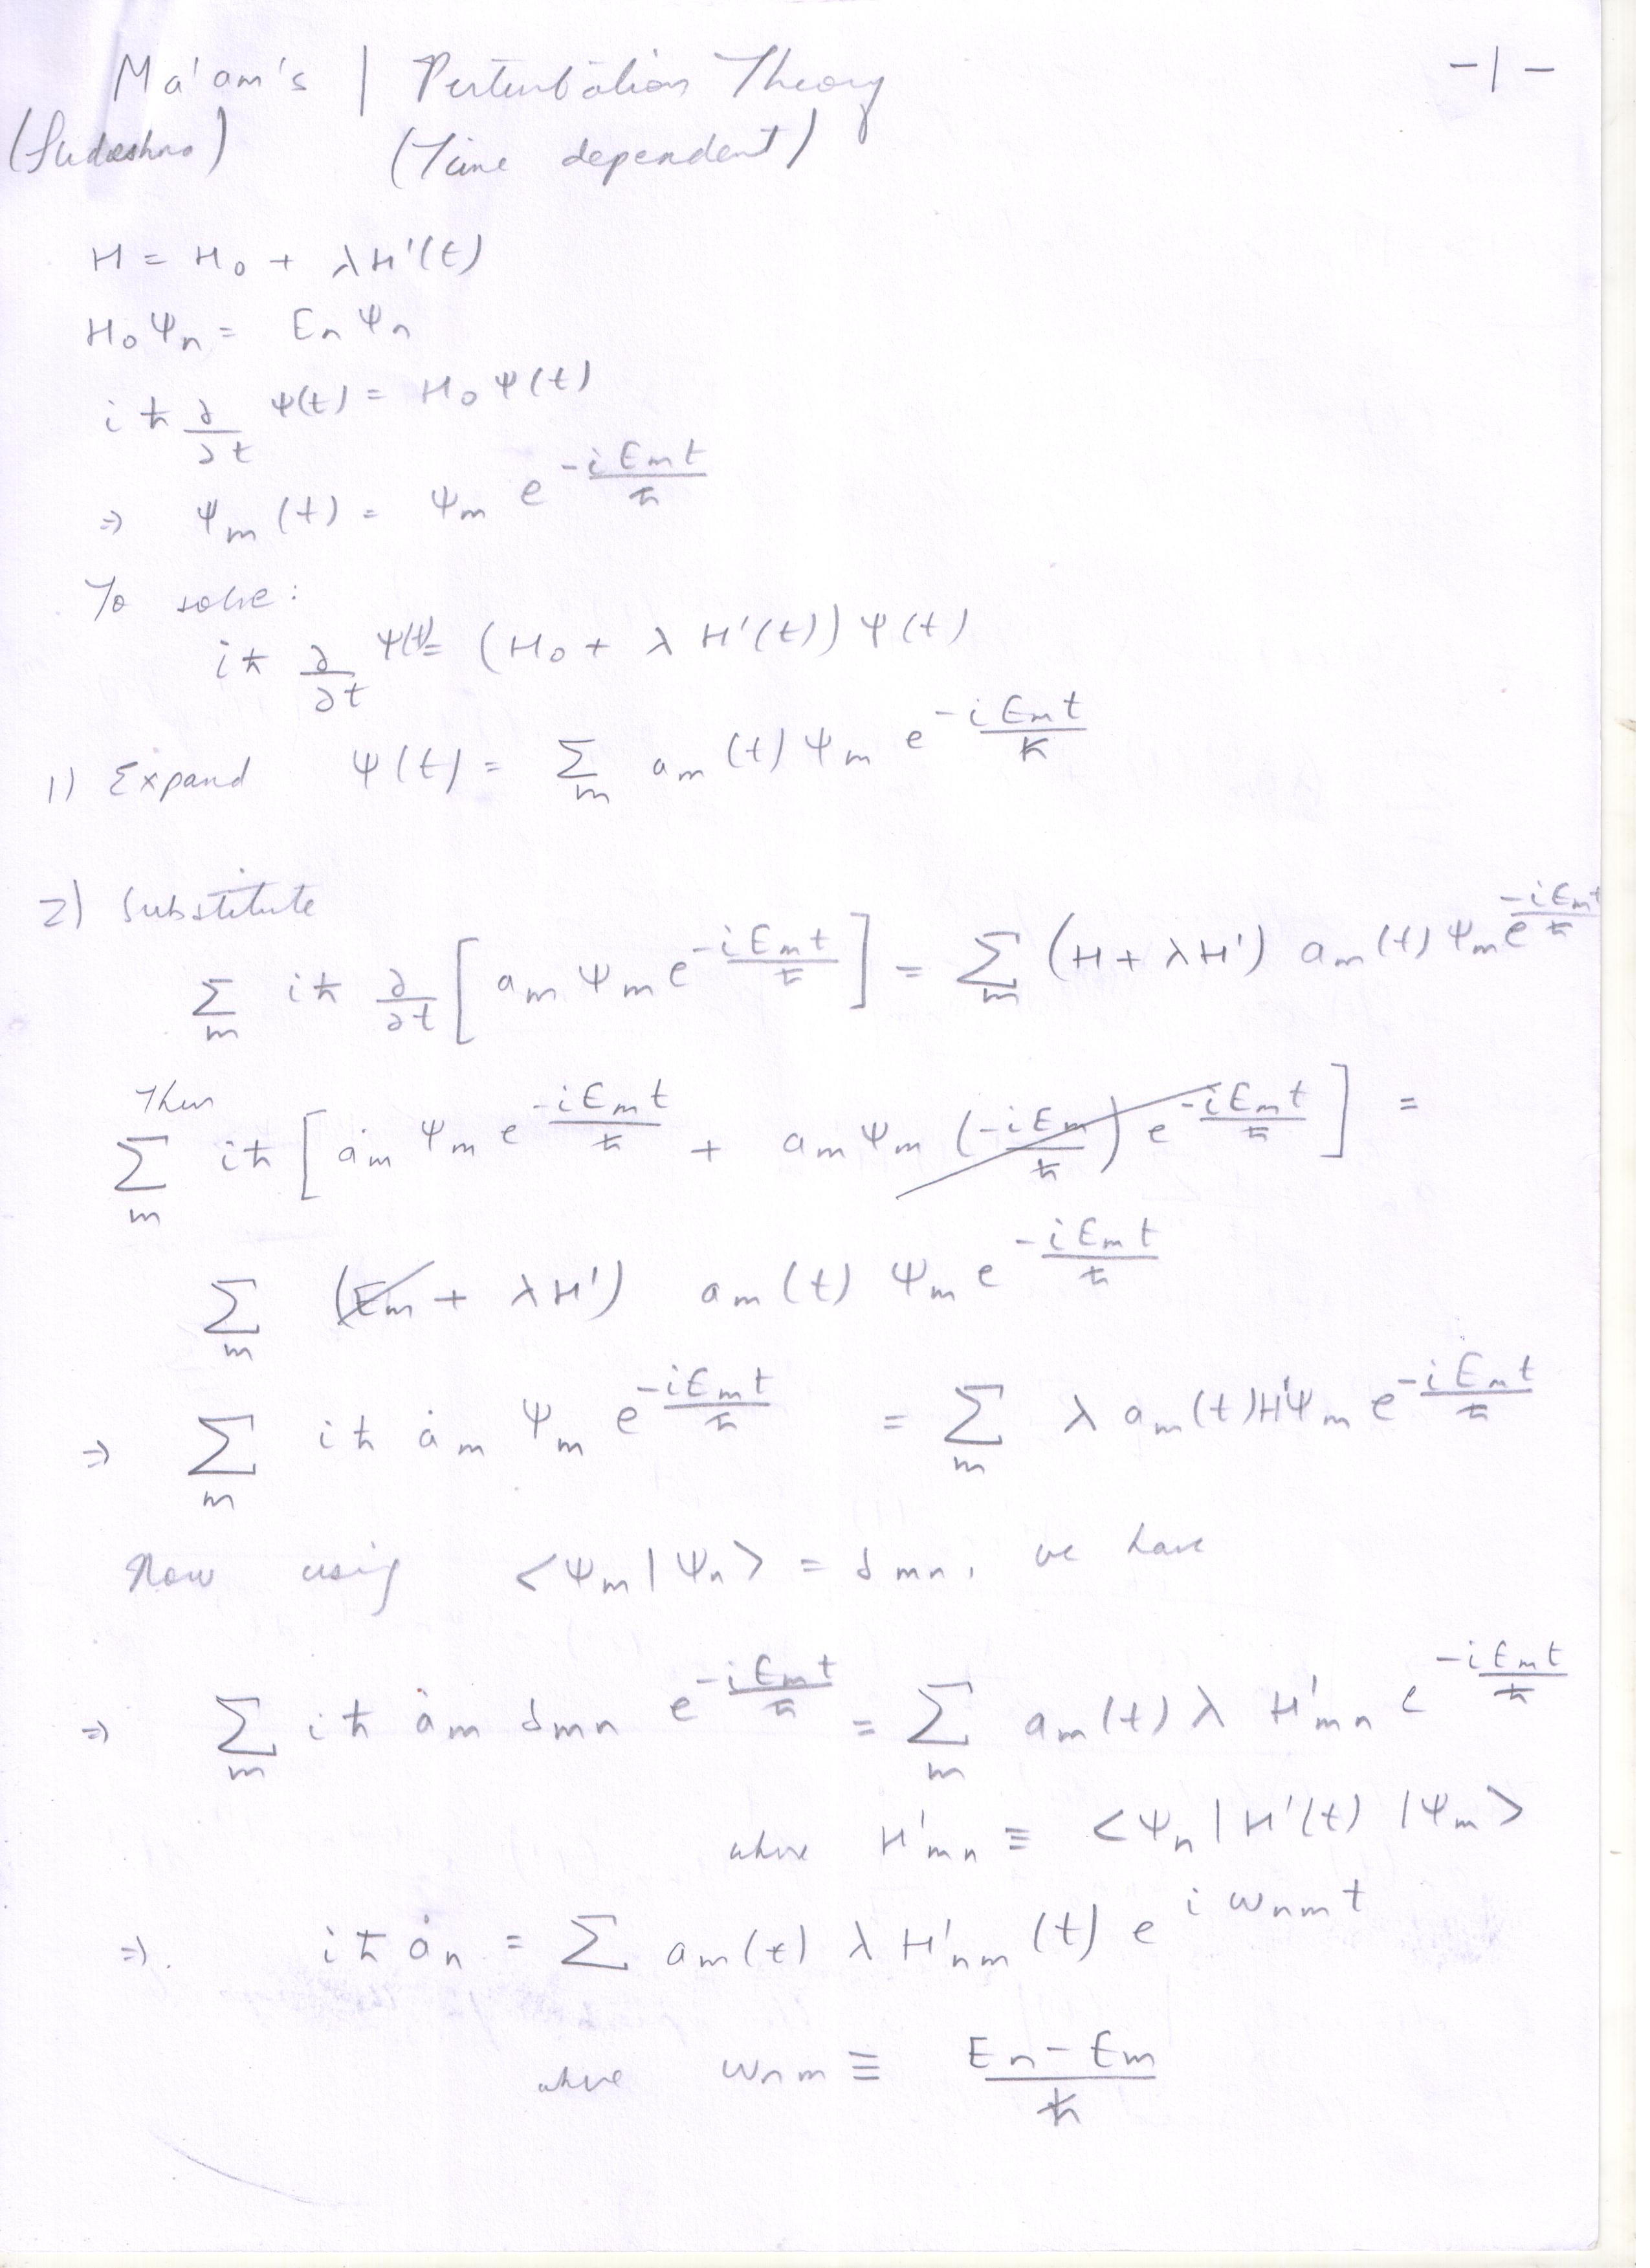 Ma'am's | Perturbation Theory -1-
(Sudeshna) (Time dependent)
H = H₀ + λH'(t)
H₀Ψₙ = EₙΨₙ
iħ ∂/∂t Ψ(t) = H₀Ψ(t)
⇒ Ψₘ(t) = Ψₘ e^(-iEₘt/ħ)
To solve:
iħ ∂/∂t Ψ(t) = (H₀ + λH'(t))Ψ(t)
1) Expand Ψ(t) = Σₘ aₘ(t) Ψₘ e^(-iEₘt/ħ)
2) Substitute
Σₘ iħ ∂/∂t [aₘ Ψₘ e^(-iEₘt/ħ)] = Σₘ (H + λH') aₘ(t) Ψₘ e^(-iEₘt/ħ)
Then
Σₘ iħ [ȧₘ Ψₘ e^(-iEₘt/ħ) + aₘ Ψₘ (-iEₘ/ħ) e^(-iEₘt/ħ)] =
Σₘ (Eₘ + λH') aₘ(t) Ψₘ e^(-iEₘt/ħ)
⇒ Σₘ iħ ȧₘ Ψₘ e^(-iEₘt/ħ) = Σₘ λ aₘ(t) H'Ψₘ e^(-iEₘt/ħ)
Now using <Ψₘ|Ψₙ> = δₘₙ, we have
⇒ Σₘ iħ ȧₘ δₘₙ e^(-iEₘt/ħ) = Σₘ aₘ(t) λ H'ₘₙ e^(-iEₘt/ħ)
where H'ₘₙ ≡ <Ψₙ|H'(t)|Ψₘ>
⇒. iħ ȧₙ = Σ aₘ(t) λ H'ₙₘ(t) e^(iωₙₘt)
where ωₙₘ ≡ (Eₙ - Eₘ)/ħ